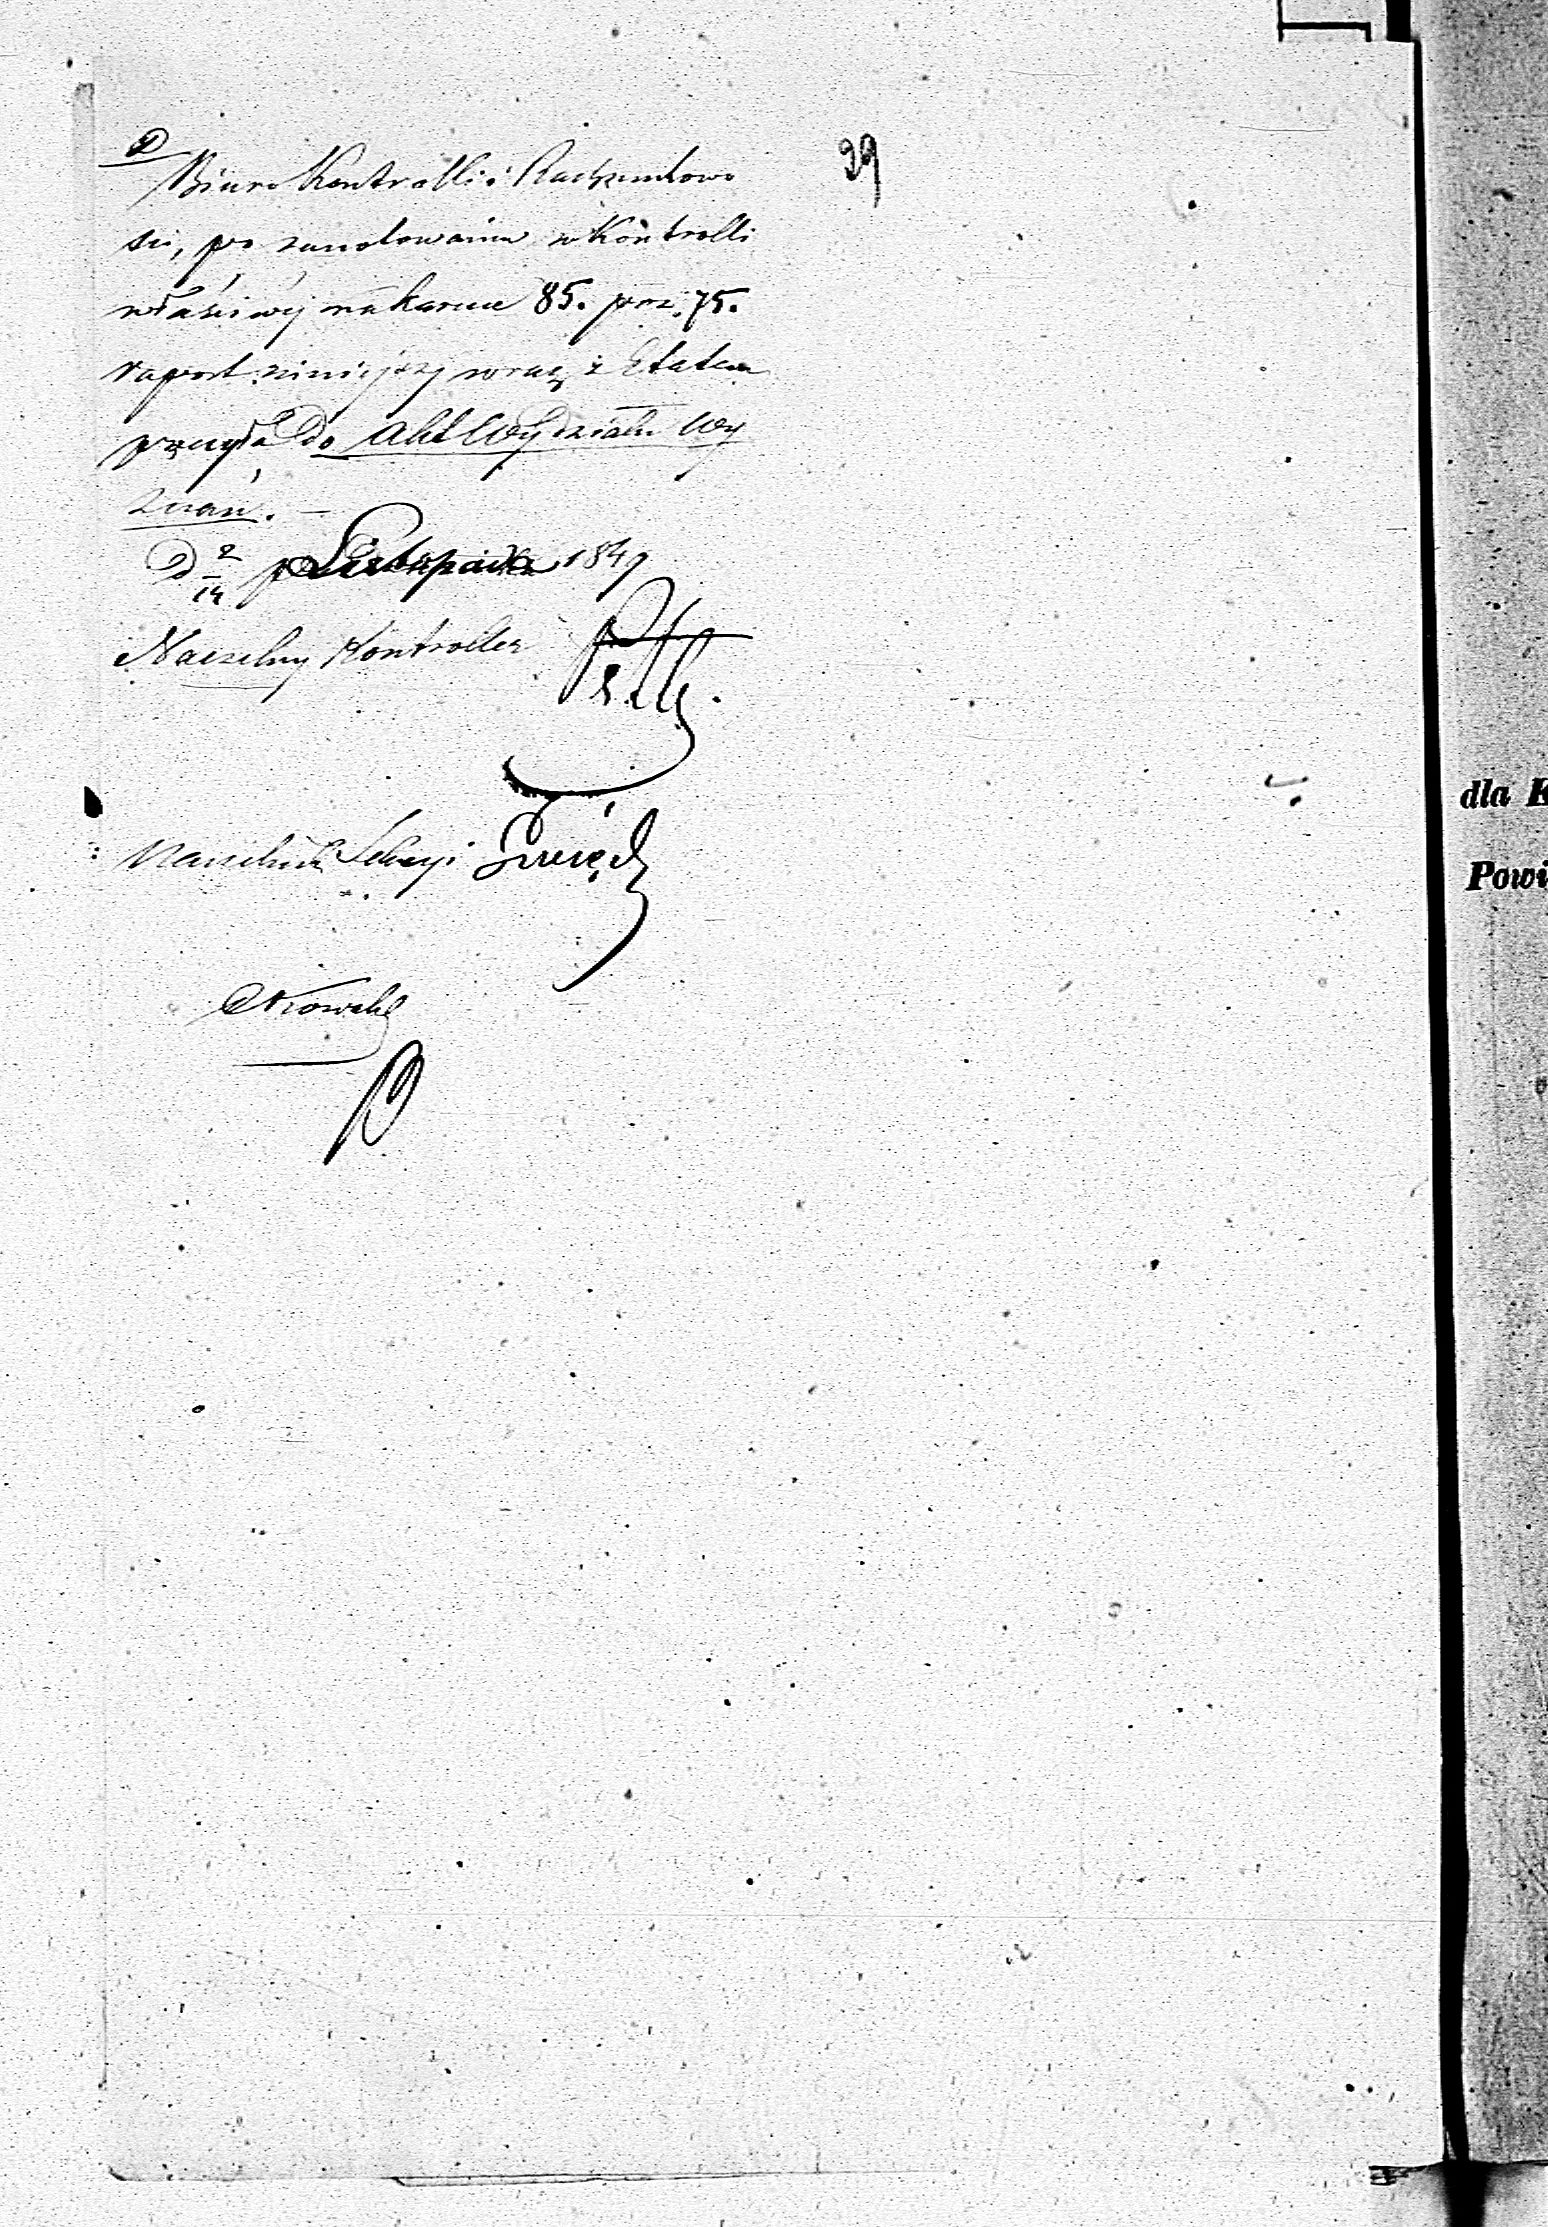 D
29
Biuro Kontrolli i Rachunkowo
ści, po zanotowaniu w Kontrolli
właściwéj na karcie 85. poz. 75.
raport niniejszy wraz z Etatem
przesyła do Akt Wydziału Wy
znań. —
D 2/14 Listopada 1849
Naczelny Kontroller
Naczelnik Sekcyi
dla K
Powi